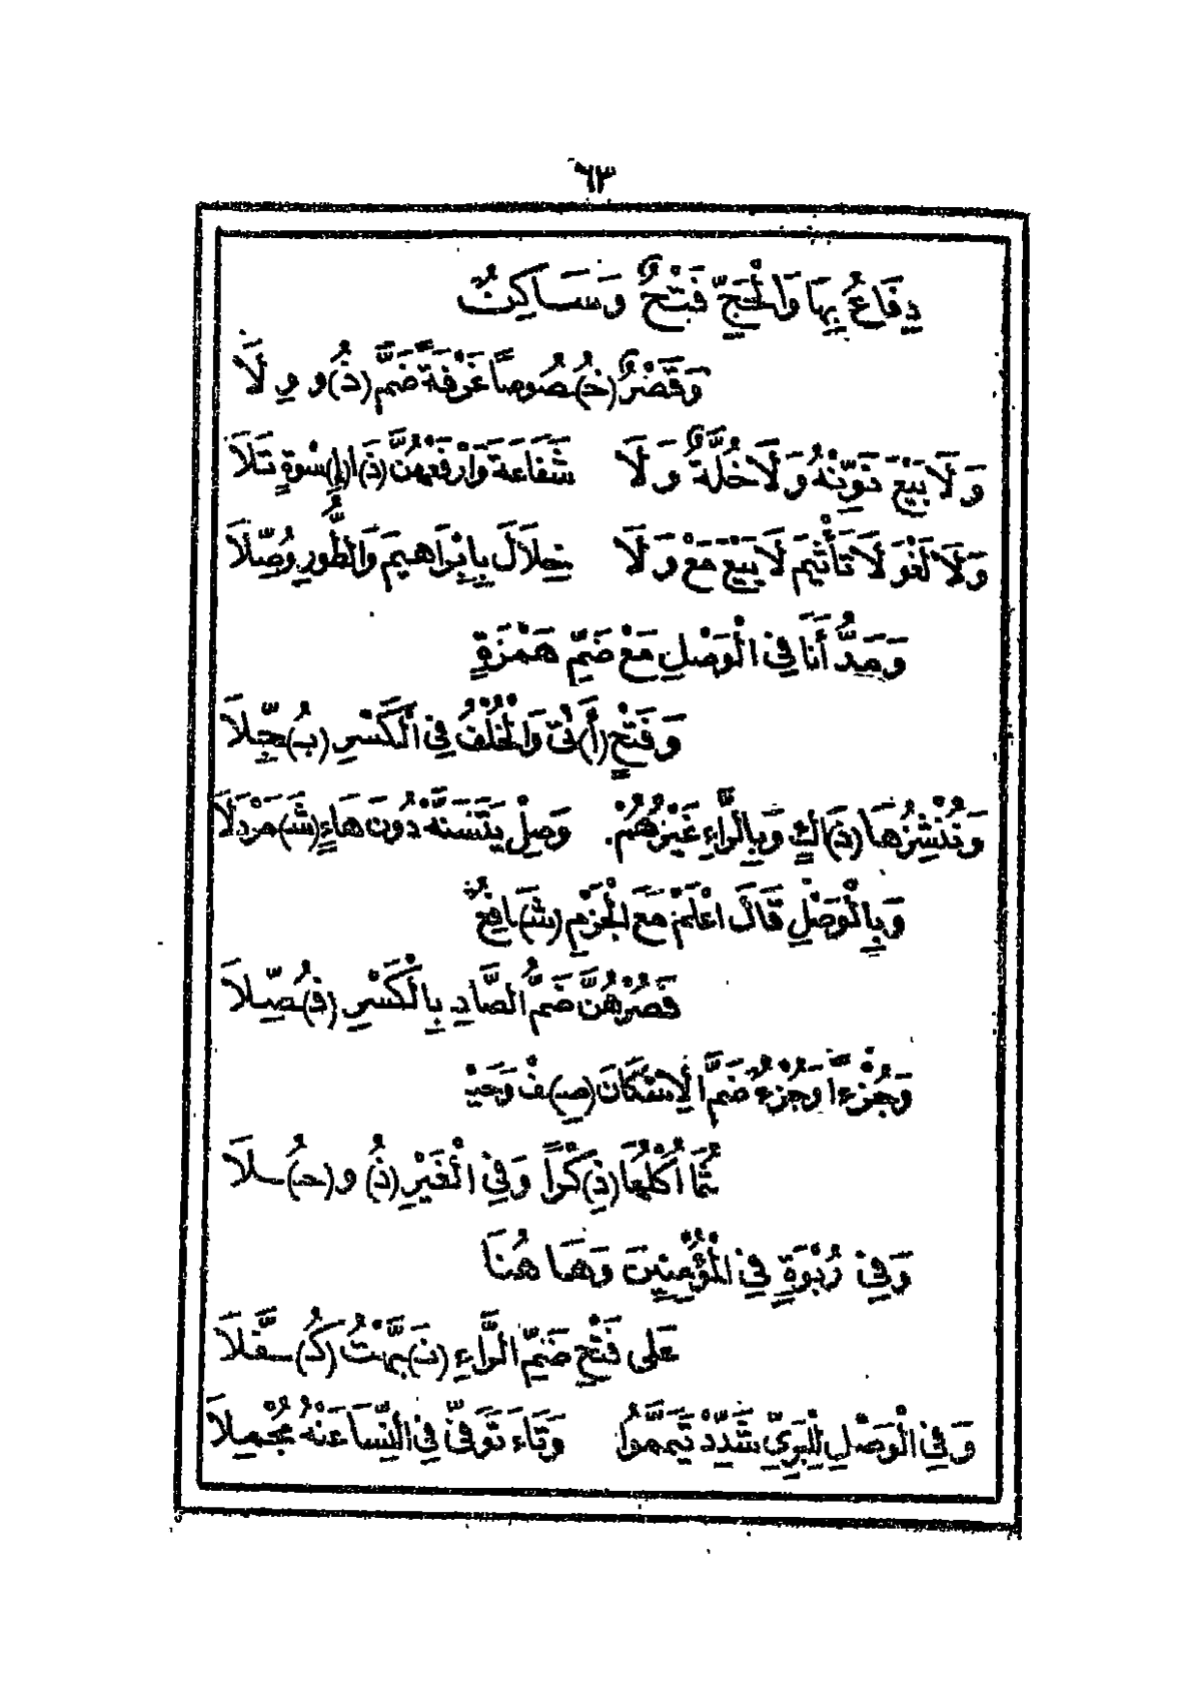 ٦٣
دِفَاعُ بِهَا وَالْحَجِّ فَتْحٌ وَسَاكِنٌ
وَقَصْرٌ (خُ)صُوصًا غَرْفَةً ضَمَّ (ذُ)و وِلَا
وَلَا بَيْعَ نَوِّنْهُ وَلَا خُلَّةٌ وَلَا شَفَاعَةَ وَارْفَعْهُنَّ (ذَ)ا (إِ)سْوَةٍ تَلَا
وَلَا لَغْوَ لَا تَأْثِيمَ لَا بَيْعَ مَعْ وَلَا خِلَالَ بِإِبْرَاهِيمَ وَالطُّورِ وُصِّلَا
وَمَدُّ أَنَا فِي الْوَصْلِ مَعْ ضَمِّ هَمْزَةٍ
وَفَتْحٍ (أَ)تَى وَالْخُلْفُ فِي الْكَسْرِ (بُ)جِّلَا
وَنُنْشِزُهَا (ذَ)اكٍ وَبِالرَّاءِ غَيْرُهُمْ. وَصِلْ يَتَسَنَّهْ دُونَ هَاءٍ (شَ)مَرْدَلَا
وَبِالْوَصْلِ قَالَ اعْلَمْ مَعَ الْجَزْمِ (شَ)افِعٌ
فَصُرْهُنَّ ضَمُّ الصَّادِ بِالْكَسْرِ (فُ)صِّلَا
وَجُزْءًا وَجُزْءٌ ضَمَّ الِاسْكَانَ (صِ)فْ وَحَيْ
ثُمَا أُكْلُهَا (ذِ)كْرًا وَفِي الْغَيْرِ (ذُ) و (حُ)ـلَا
وَفِي رُبْوَةٍ فِي الْمُؤْمِنِينَ وَهَا هُنَا
عَلَى فَتْحِ ضَمِّ الرَّاءِ (نَ)بَّهْتُ (كُ)ـفَّلَا
وَفِي الْوَصْلِ لِلْبَزِّيِّ شَدِّدْ تَيَمَّمُوا وَتَاءَ تَوَفَّى فِي النِّسَا عَنْهُ مُجْمِلَا